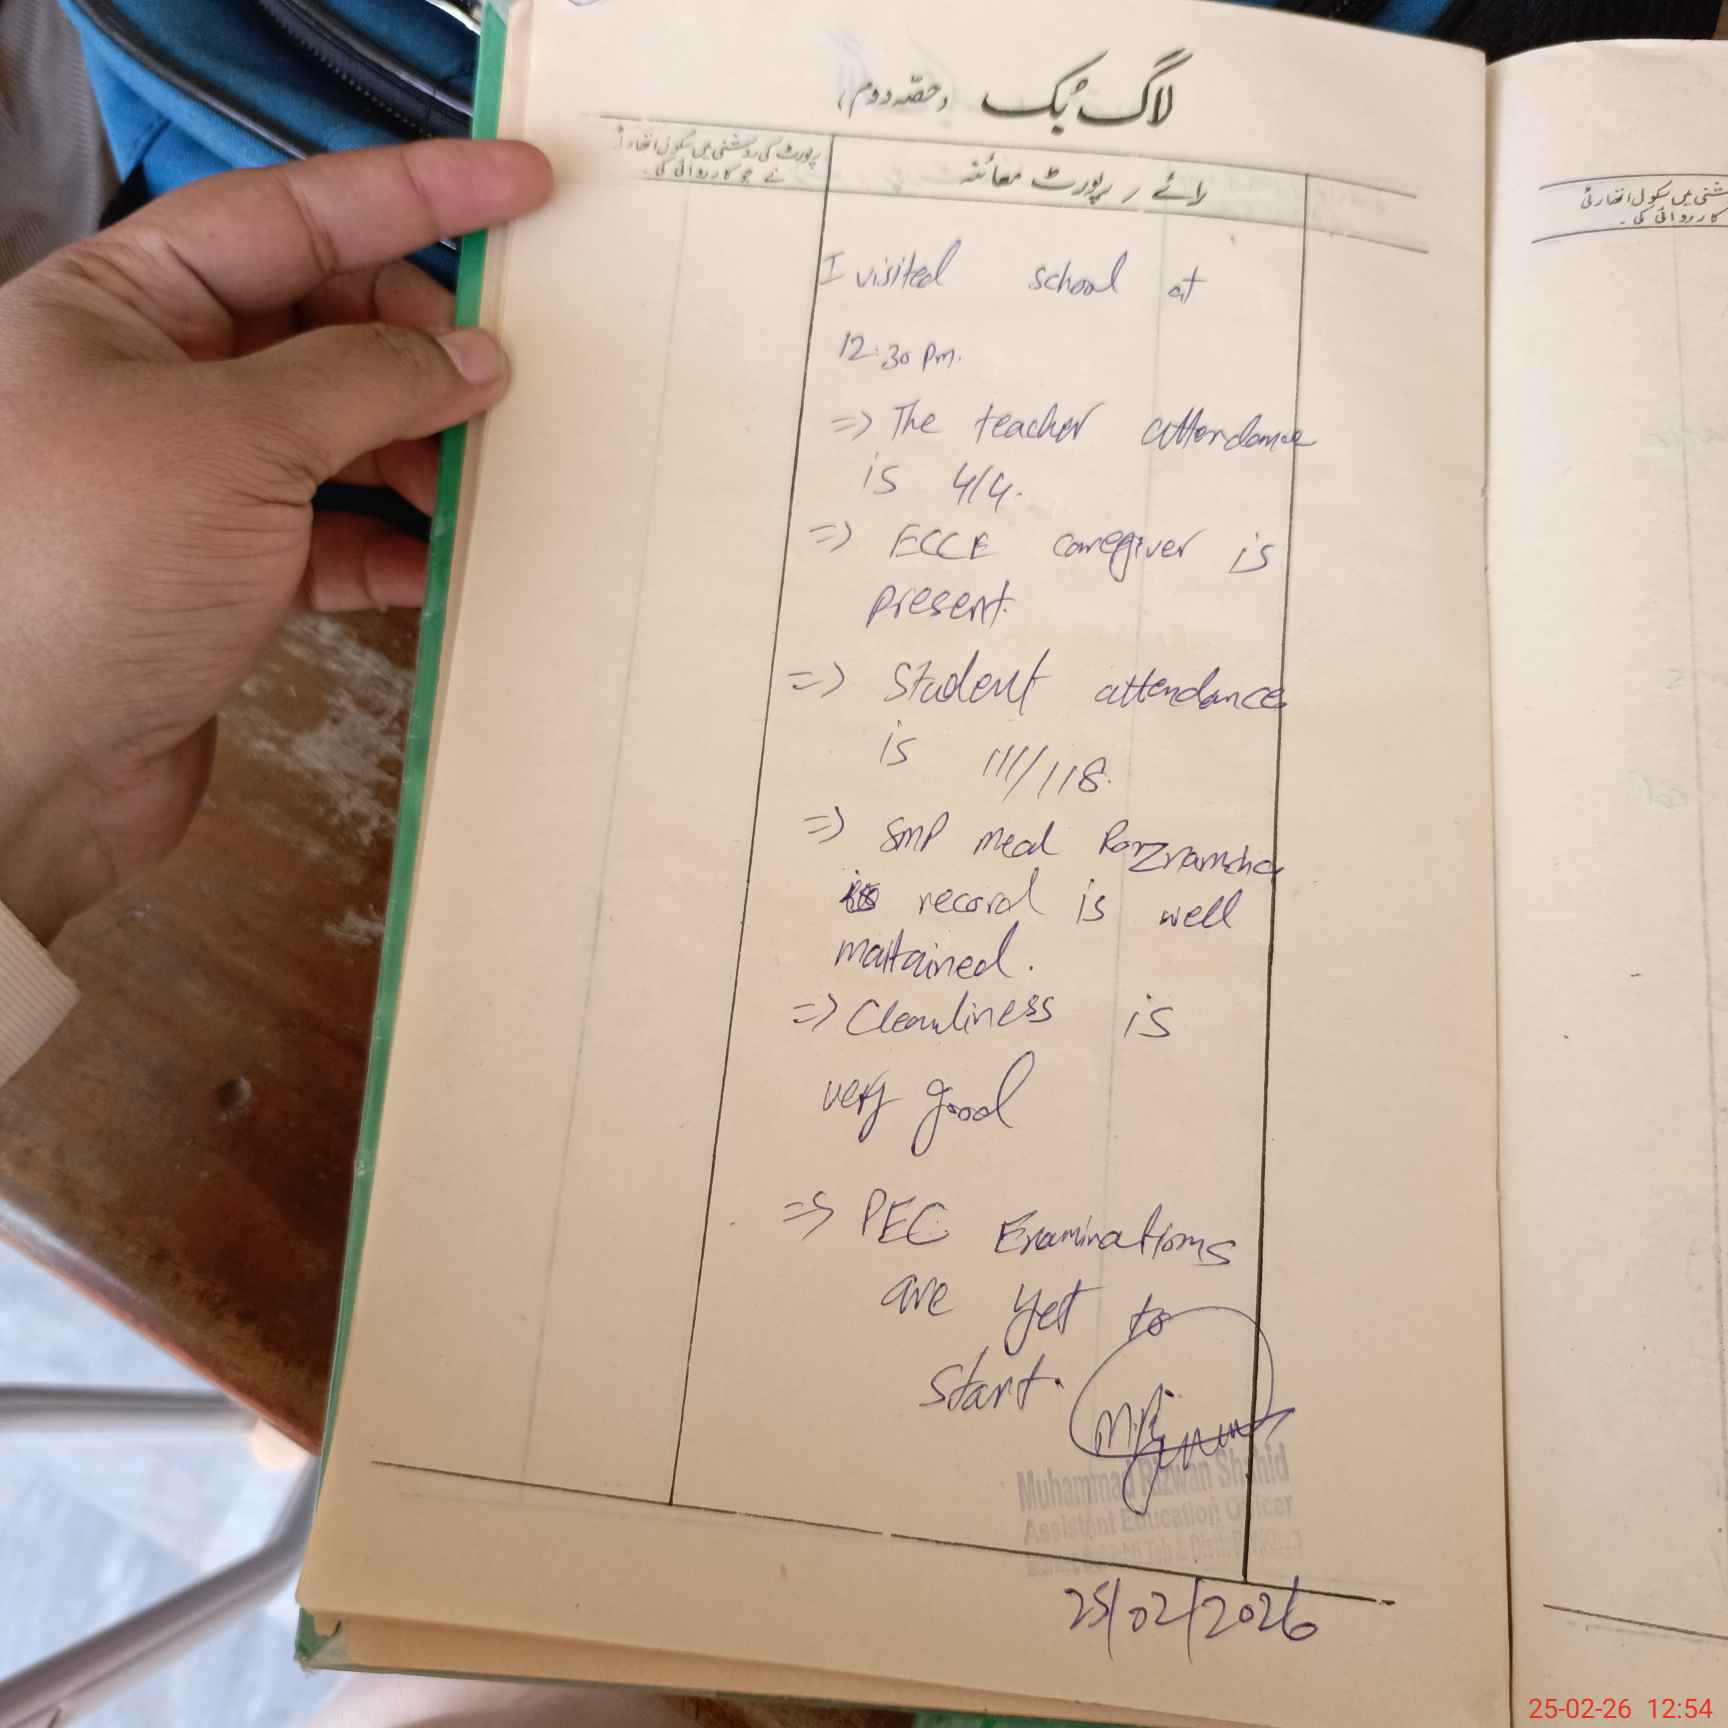 لاگ بُک (حصّہ دوم)
رائے / رپورٹ معائنہ
رپورٹ کی روشنی میں سکول اتھارٹی
نے جو کارروائی کی۔
I visited school at
12:30 pm.
=> The teacher attendance
is 4/4.
=> ECCE caregiver is
present.
=> Student attendance
is 111/118.
=> SMP meal Roznamcha
record is well
maitained.
=> Cleanliness is
very good
=> PEC Examinations
are yet to
start.
Muhammad Rizwan Shahid
Assistant Education Officer
25/02/2026
شنی میں سکول اتھارٹی
کارروائی کی۔
25-02-26 12:54